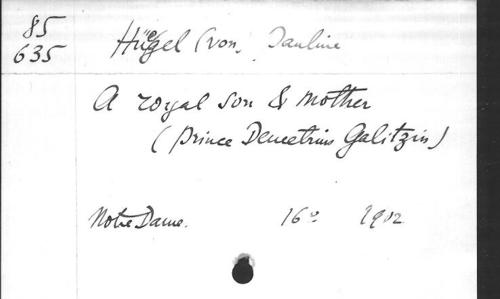 85
635
Hügel (von, Pauline
A royal son & mother
(Prince Demetrius Galitzin)
Notre Dame. 16° 1902